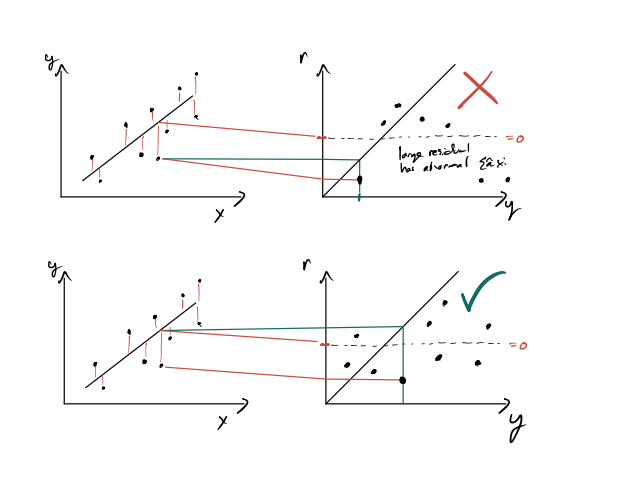 y
r
= 0
large residual
has abnormal
x
y
y
r
= 0
x
y